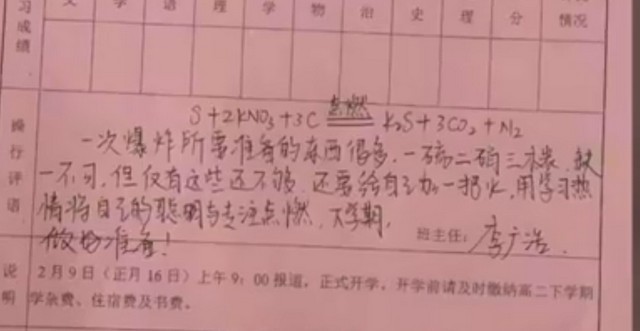 习 文 学 语 理 学 物 治 史 理 分 情况
成
绩
点燃
S+2KNO₃+3C ══ K₂S+3CO₂+N₂
操行评语
一次爆炸所需准备的东西很多,一硫二硝三木炭,缺
一不可,但仅有这些还不够,还要给自己加一把火,用学习热
情将自己的聪明与专注点燃,下学期,
做好准备!
班主任: 李广浩.
说明
2月9日(正月16日)上午9:00报道,正式开学,开学前请及时缴纳高二下学期
学杂费、住宿费及书费。